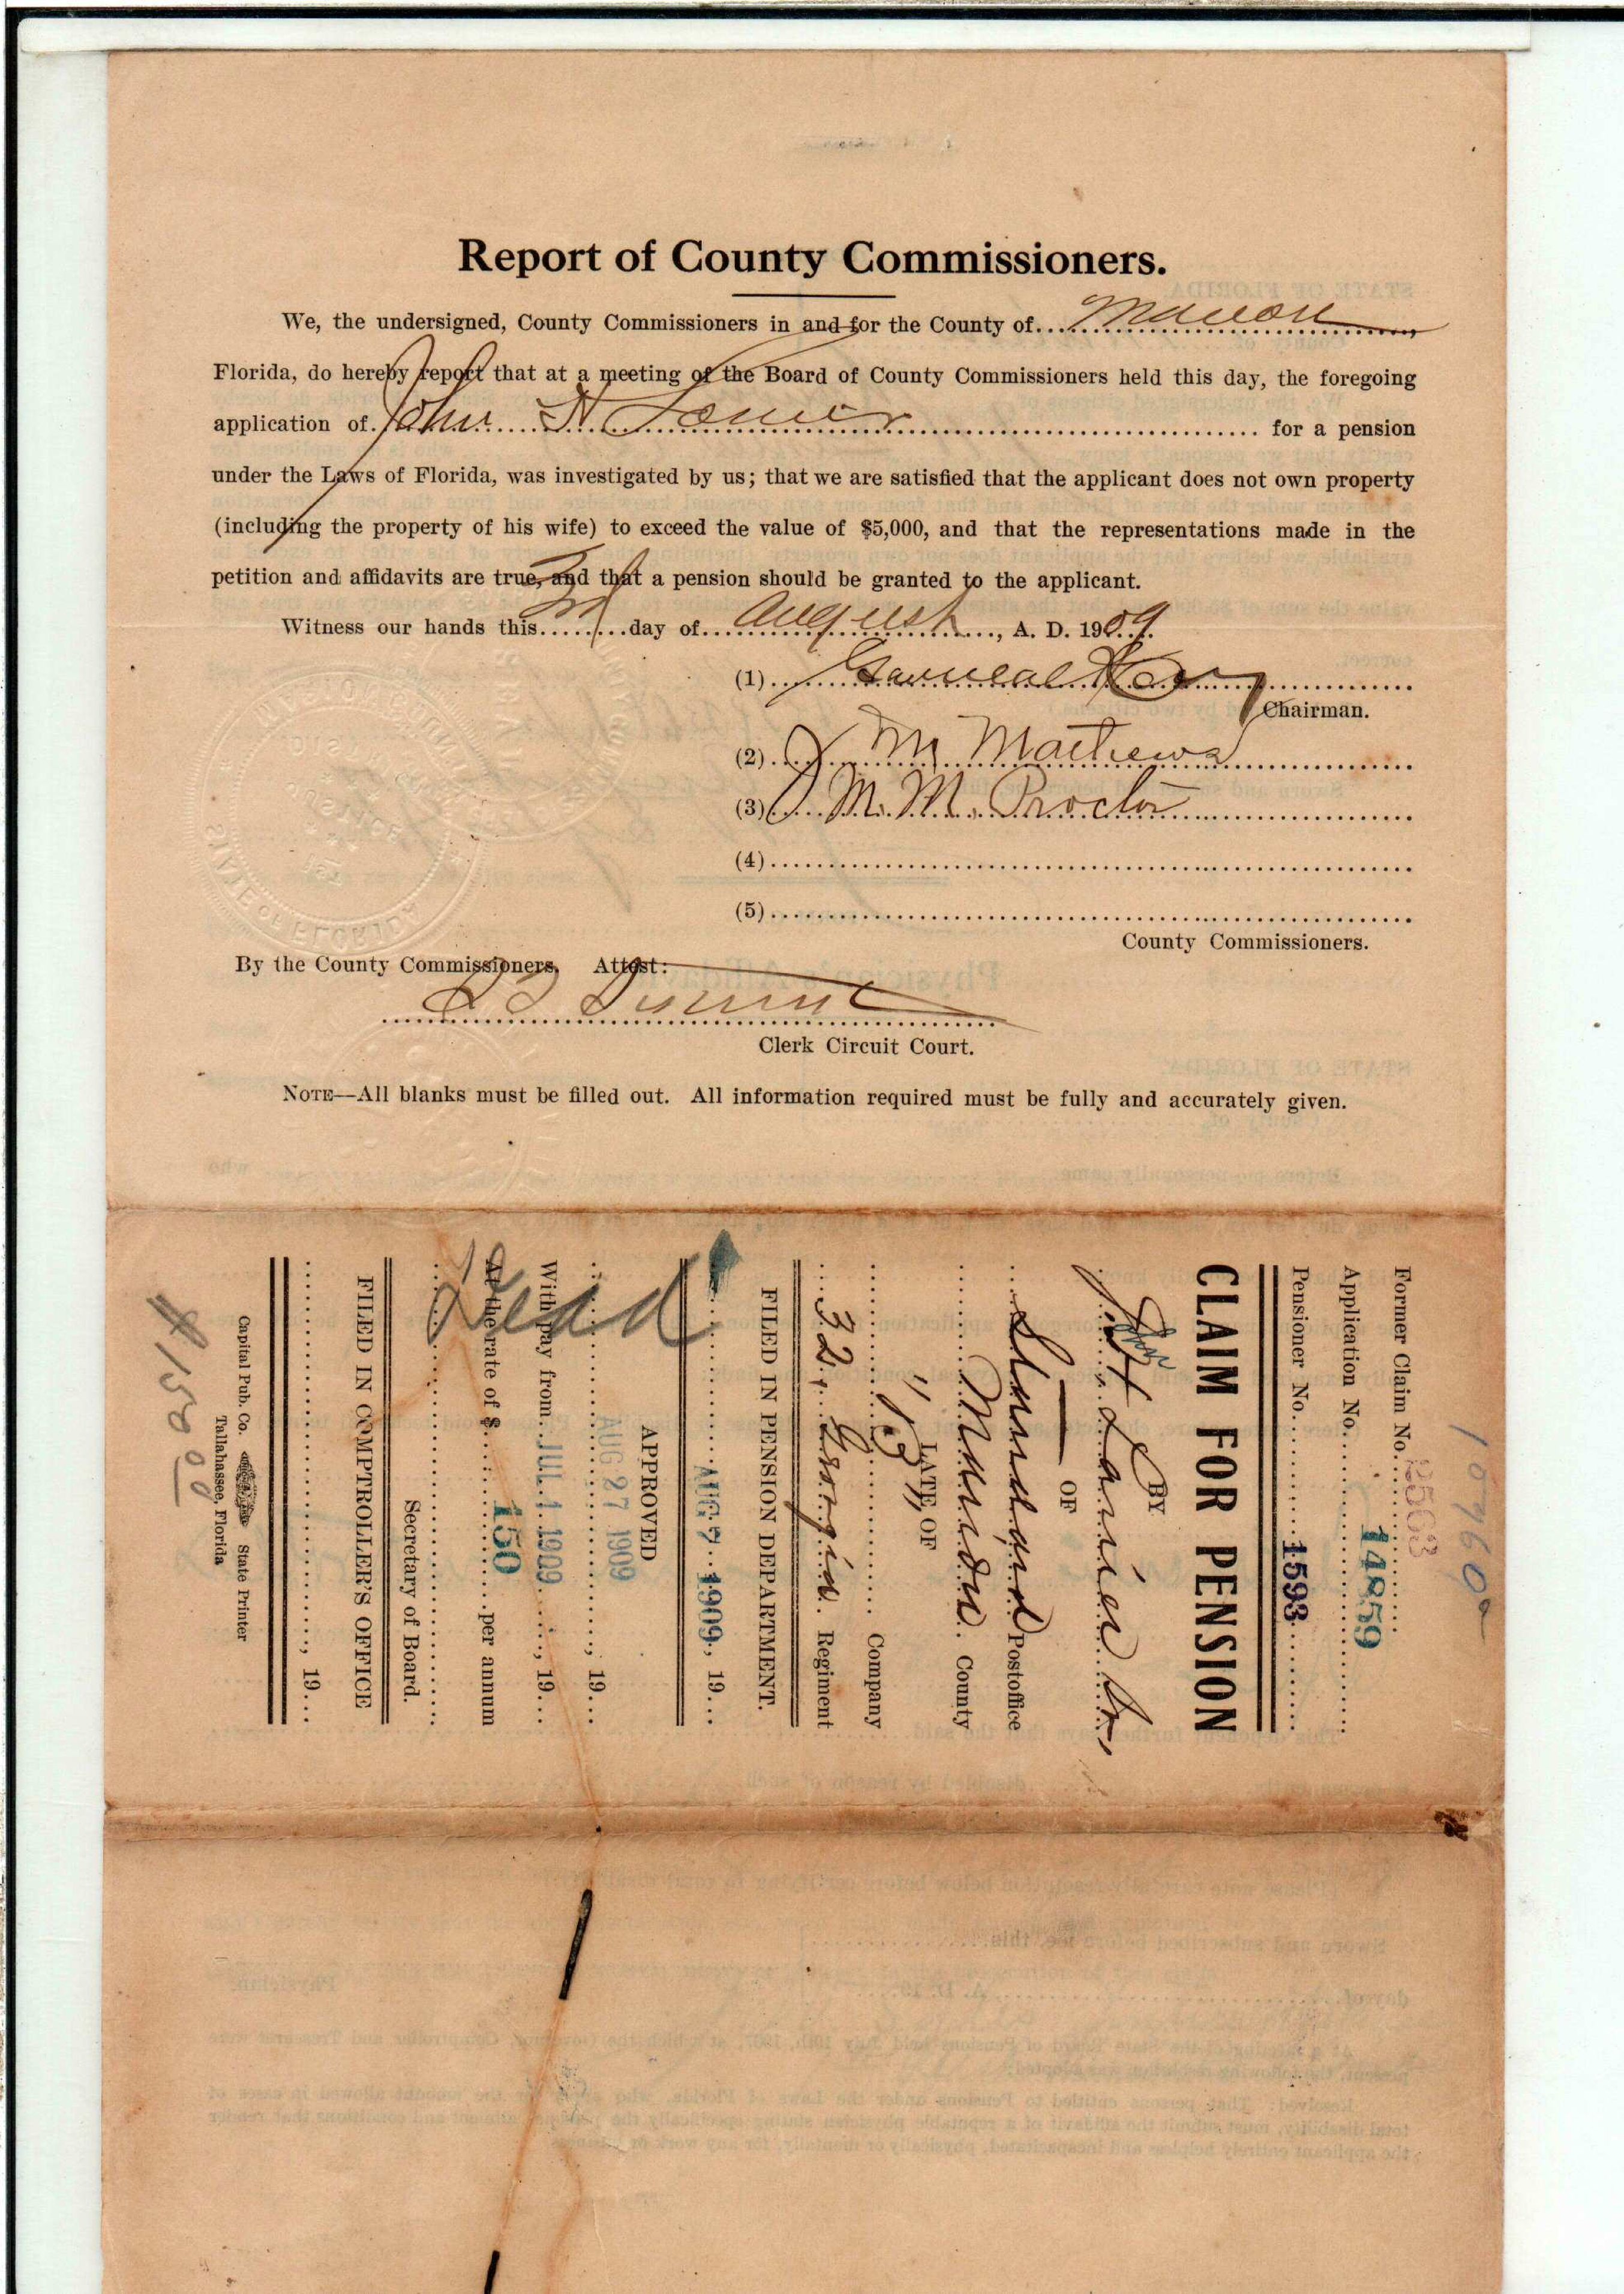 Report of County Commissioners.
We, the undersigned, County Commissioners in and for the County of Marion,
Florida, do hereby report that at a meeting of the Board of County Commissioners held this day, the foregoing
application of John H Lanier for a pension
under the Laws of Florida, was investigated by us; that we are satisfied that the applicant does not own property
(including the property of his wife) to exceed the value of $5,000, and that the representations made in the
petition and affidavits are true, and that a pension should be granted to the applicant.
Witness our hands this 3rd day of August, A. D. 1909.
(1)
Chairman.
(2) J M Mathews
(3) J M. M. Proctor
(4)
(5)
County Commissioners.
By the County Commissioners, Attest:
Clerk Circuit Court.
NOTE—All blanks must be filled out. All information required must be fully and accurately given.
Former Claim No. 2563
Application No. 14859
Pensioner No. 1593
CLAIM FOR PENSION
BY
John
J. H. Lanier Sr,
OF
Postoffice
Marion County
LATE OF
"B" Company
32, Georgia Regiment
FILED IN PENSION DEPARTMENT.
AUG 7 1909, 19
APPROVED
AUG 27 1909, 19
With pay from JUL 1 1909, 19
At the rate of $ 150 per annum
Dead
Secretary of Board.
FILED IN COMPTROLLER'S OFFICE
, 19
Capital Pub. Co. State Printer
Tallahassee, Florida
$150 00